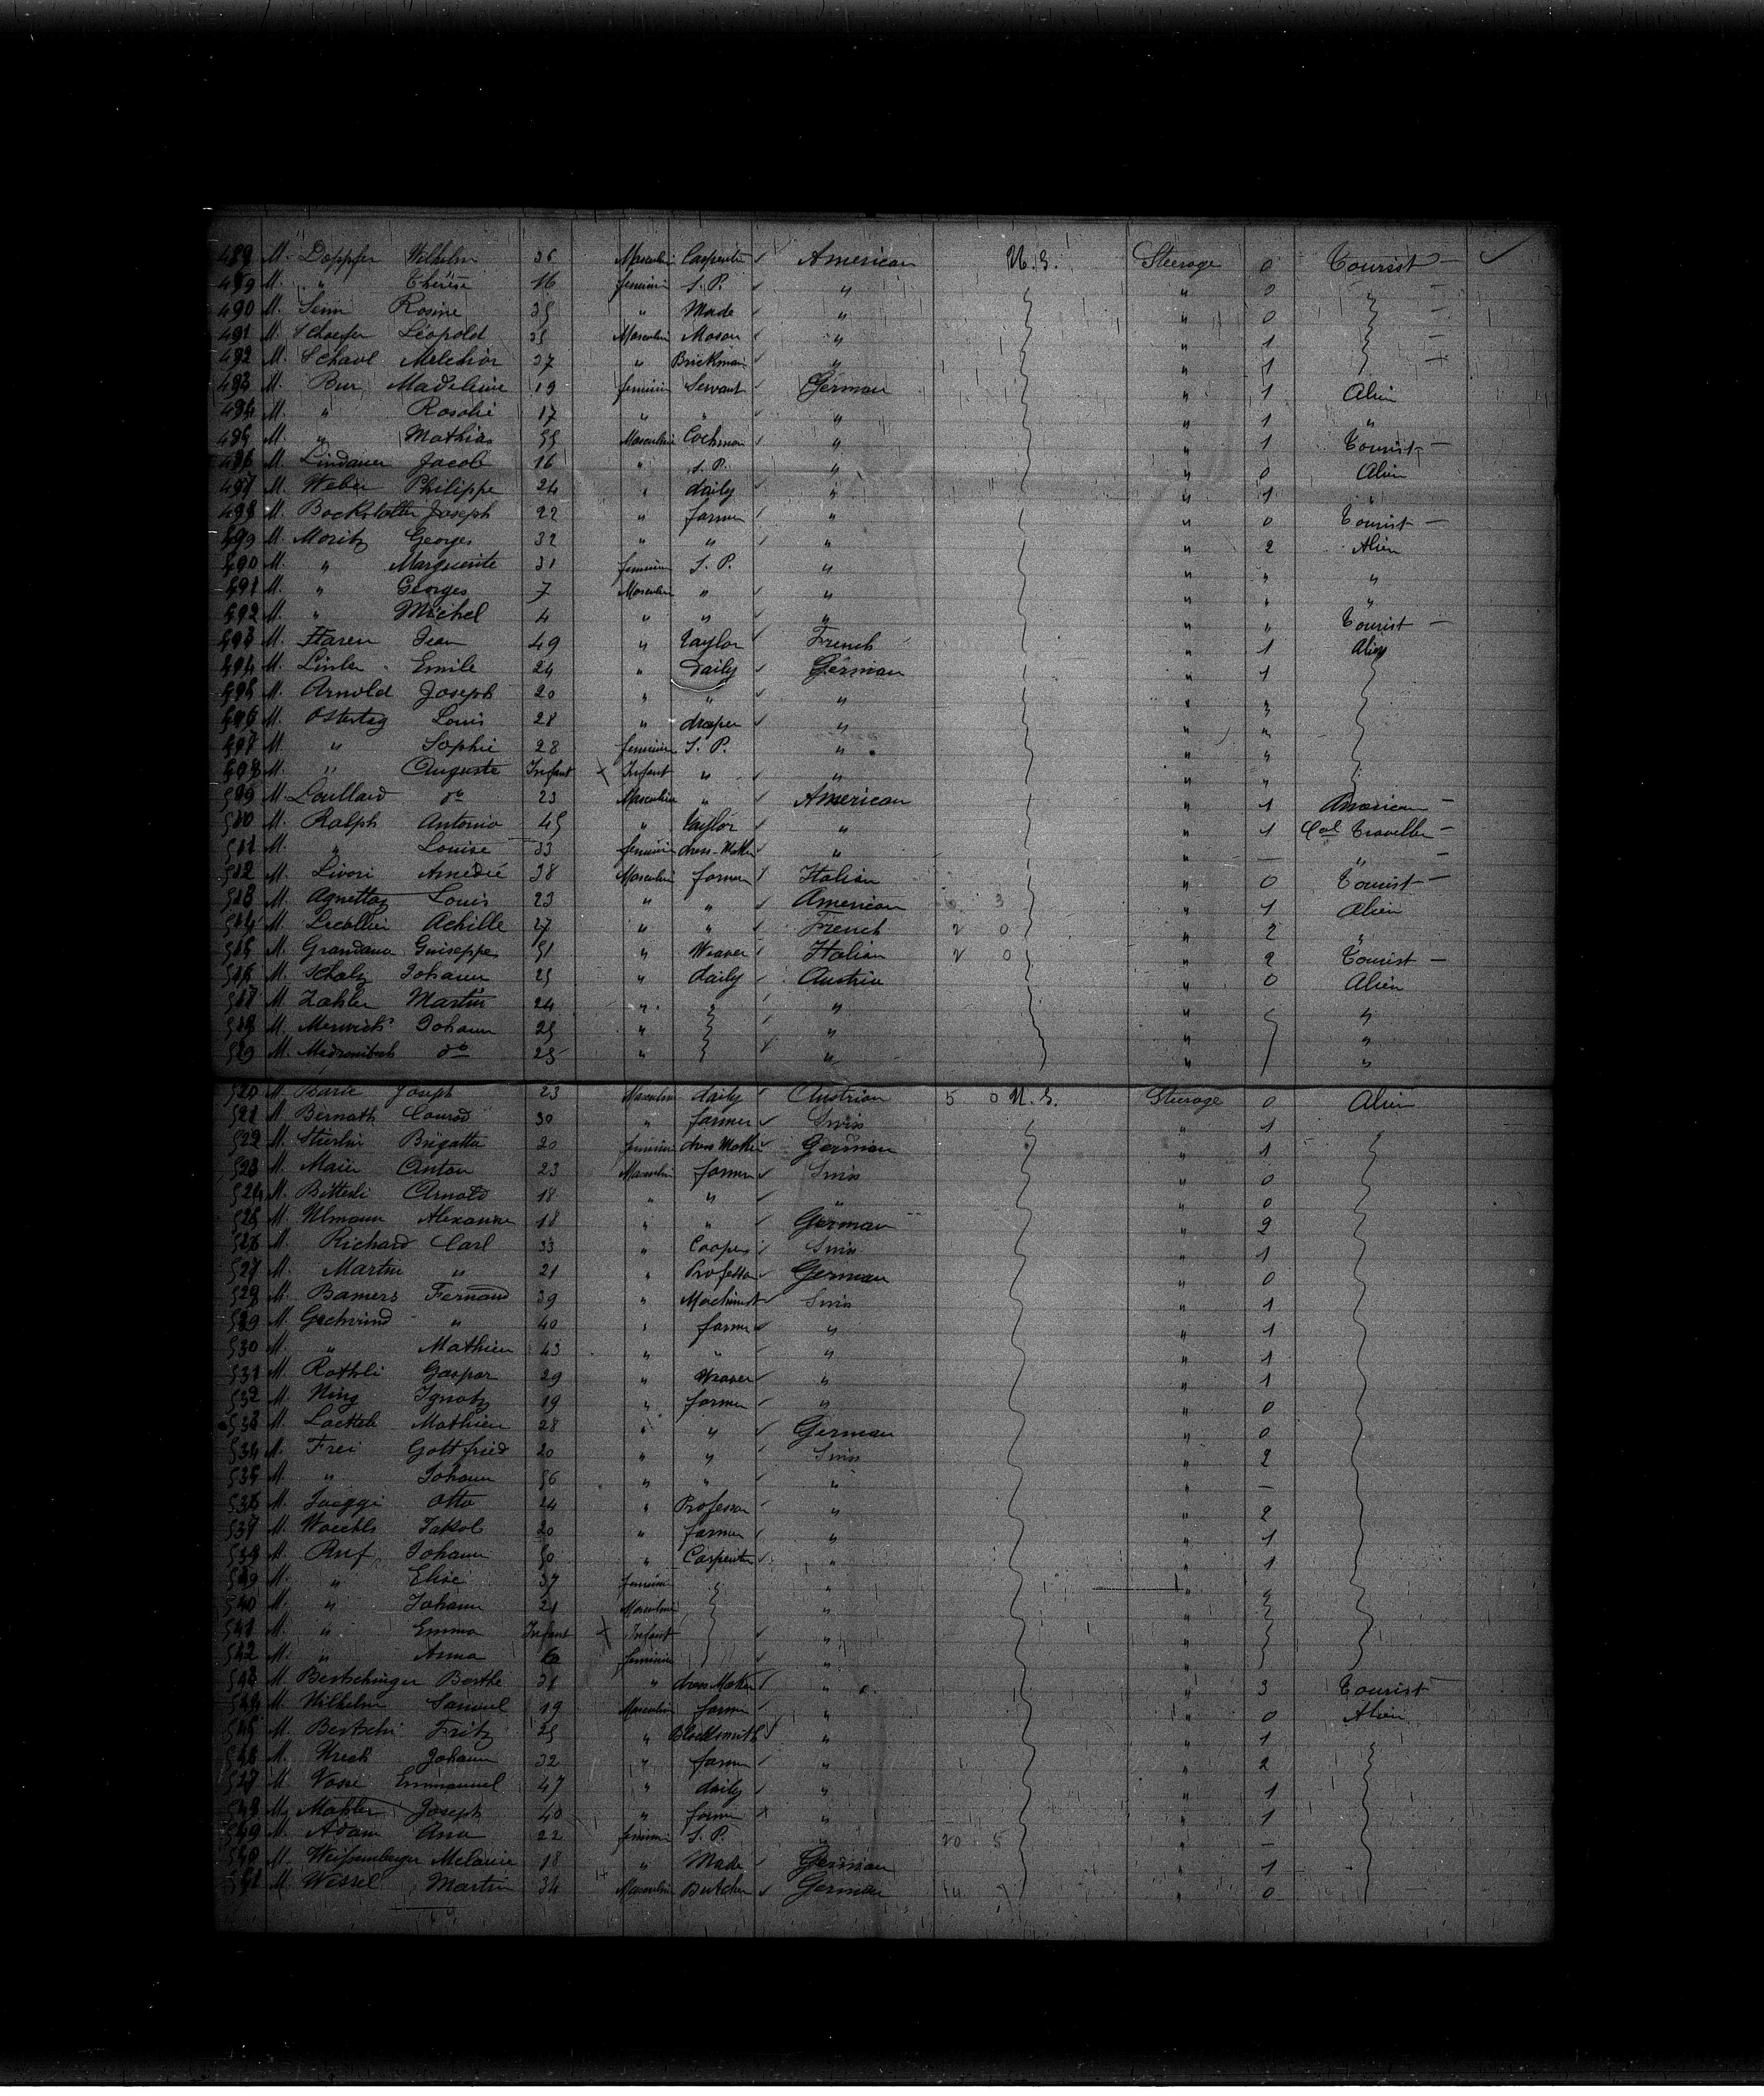 489 M. Doppfer Wilhelm 36 Masculin Carpenter American U.S. Steerage 0 Tourist —
489 M. " Thérèse 16 feminin S.P. " " 0
490 M. Senn Rosine 35 " Made " " 0
491 M. Schaefer Léopold 35 Masculin Mason " " 1
492 M. Schaul Melchior 37 " Brickman " " 1
493 M. Bur Madeleine 19 feminin Servant German " 1 Alien
494 M. " Rosalie 17 " " " " 1 "
495 M. " Mathias 55 Masculin Cochman " " 1 Tourist —
496 M. Lindauer Jacob 16 " S.P. " " 0 Alien
497 M. Weber Philippe 24 " daily " " 1 "
498 M. Joseph 22 " farmer " " 0 Tourist —
499 M. Moritz Georges 32 " " " " 2 Alien
M. " Marguerite 31 feminin S.P. " " " "
M. " Georges 7 Masculin " " " " "
M. " Michel 4 " " " " " Tourist —
M. Haren Jean 49 " Taylor French " 1 Alien
M. Linler Emile 24 " Daily German " 1
M. Arnold Joseph 20 " " " " 3
M. Ostertag Louis 28 " draper " " "
M. " Sophie 28 feminin S.P. " " "
M. " Auguste Infant Infant " " " "
M. Loullard do 23 Masculin " American " 1 American —
510 M. Ralph Antonio 45 " Taylor " " 1 Cal Traveller —
511 M. " Louise 33 feminin dress-Maker " " — " —
512 M. Livori Amédié 38 Masculin farmer Italian " 0 Tourist —
513 M. Agnettaz Louis 23 " " American 3 " 1 Alien
514 M. Lecollier Achille 27 " " French 2 0 " 2 "
515 M. Grandana Guiseppe 51 " Weaver Italian 2 0 " 2 Tourist —
516 M. Johann 25 " daily Austria " 0 Alien
517 M. Zahler Martin 24 " " " "
518 M. Johann 25 " " " "
519 M. do 25 " " " "
520 M. Baric Joseph 23 Masculin daily Austrian 5 0 U.S. Steerage 0 Alien
521 M. Bernath Conrad 30 " farmer Swiss " 1
522 M. Stierlin Brigatta 20 feminin dress Maker German " 1
523 M. Maier Anton 23 Masculin farmer Swiss " 0
524 M. Bitterli Arnold 18 " " " " 0
525 M. Ulmann Alexandre 18 " " German " 2
526 M. Richard Carl 33 " Cooper Swiss " 1
527 M. Martin " 21 " Professor German " 0
528 M. Bamers Fernand 39 " Machinist Swiss " 1
529 M. Gschwind " 40 " farmer " " 1
530 M. " Mathieu 43 " " " " 1
531 M. Rothli Gaspar 29 " Weaver " " 1
532 M. Ning Ignatz 19 " farmer " " 0
533 M. Laetteli Mathieu 28 " " German " 0
534 M. Frei Gottfried 20 " " Swiss " 2
535 M. " Johann 56 " " " " —
536 M. Jaeggi Otto 24 " Professor " " 2
537 M. Jakob 20 " farmer " " 1
538 M. Ruf Johann 50 " Carpenter " " 1
539 M. " Elise 37 feminin " " "
540 M. " Johann 21 Masculine " "
541 M. " Emma Infant Infant " "
542 M. " Anna 6 feminin " "
543 M. Bertschinger Berthe 21 " dress Maker " " 3 Tourist
544 M. Wilhelm Samuel 19 Masculin farmer " " 0 Alien
545 M. Bertschi Fritz 25 " Blacksmith " " 1
546 M. Urech Johann 32 " farmer " " 2
547 M. Vasse Emmanuel 47 " daily " " 1
548 M. Mahler Joseph 40 " farmer " " 1
549 M. Adam Ana 22 feminin S.P. " 20 5 " —
M. Weissemberger Melanie 18 " Made German " 1
M. Wessel Martin 34 Masculin Butcher German " 0